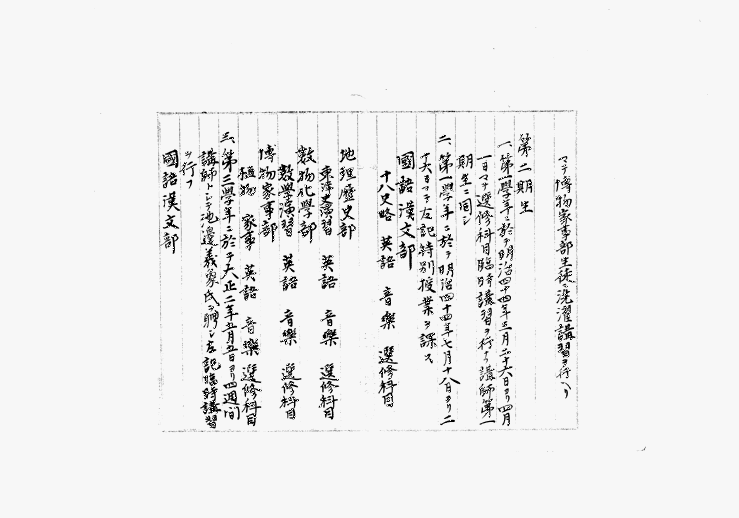 マテ博物家事部生徒ニ洗濯講習ヲ行ヘリ
第二期生
一、第一學年ニ於テ明治四十四年三月二十六日ヨリ四月
一日マテ選修科目臨時講習ヲ行フ講師第一
期生ニ同シ
二、第一學年ニ於テ明治四十四年七月十八日ヨリ二
十六日マテ左記特別授業ヲ課ス
國語漢文部
十八史略 英語 音樂 選修科目
地理歷史部
東洋史演習 英語 音樂 選修科目
數物化學部
數學演習 英語 音樂 選修科目
博物家事部
植物 家事 英語 音樂 選修科目
三、第三學年ニ於テ大正二年五月五日ヨリ四週間
講師トシテ池邊義象氏ヲ聘シ左記臨時講習
ヲ行フ
國語漢文部